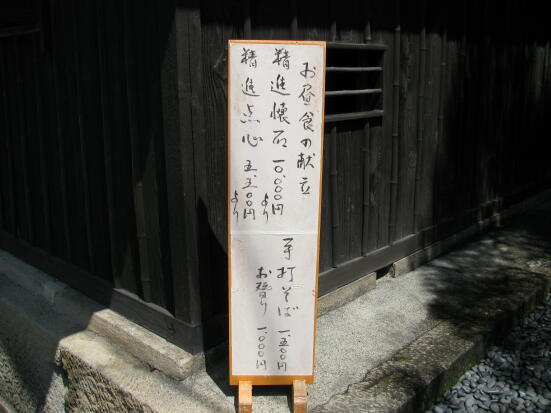 お昼食の献立
精進懐石 一〇、〇〇〇円より
精進点心 五、五〇〇円より
手打そば 一、五〇〇円
お替り 一、〇〇〇円